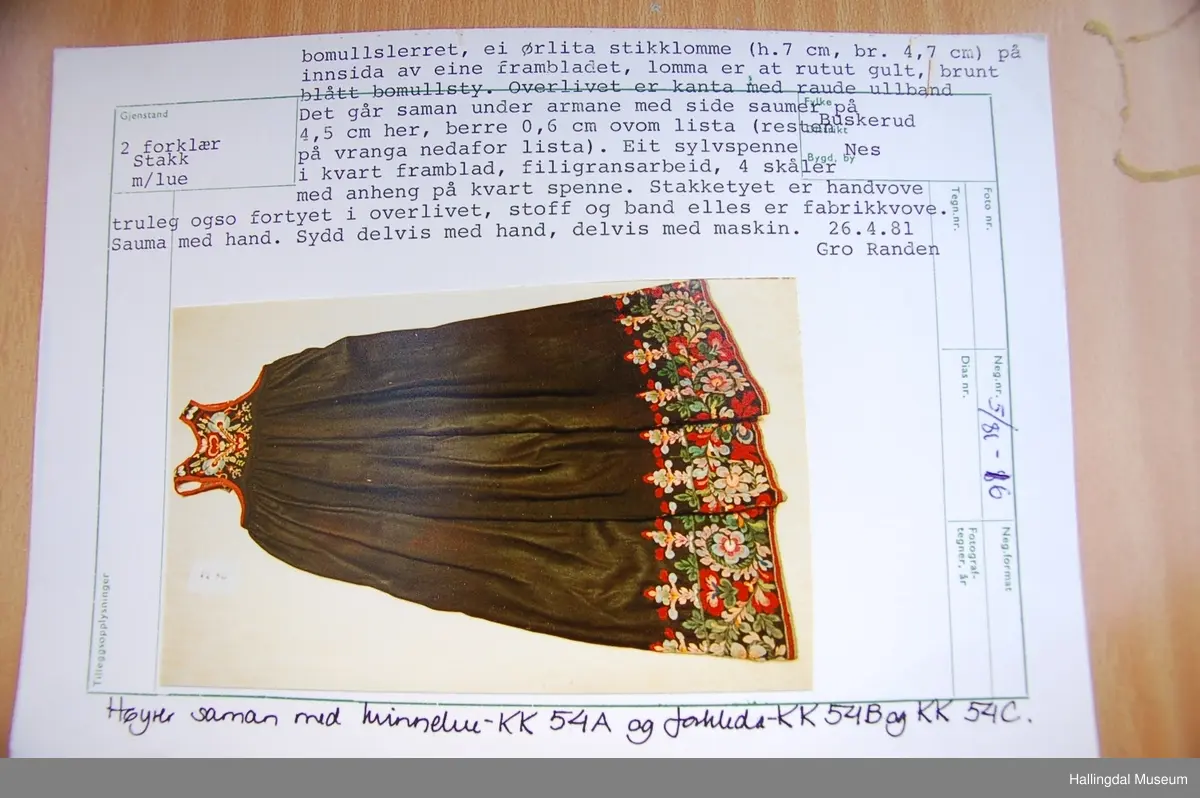 bomullslerret, ei ørlita stikklomme (h.7 cm, br. 4,7 cm) på
innsida av eine frambladet, lomma er at rutut gult, brunt
blått bomullsty. Overlivet er kanta med raude ullband
Det går saman under armane med side saumer på
4,5 cm her, berre 0,6 cm ovom lista (resten
på vranga nedafor lista). Eit sylvspenne
i kvart framblad, filigransarbeid, 4 skåler
med anheng på kvart spenne. Stakketyet er handvove
truleg ogso fortyet i overlivet, stoff og band elles er fabrikkvove.
Sauma med hand. Sydd delvis med hand, delvis med maskin. 26.4.81
Gro Randen
Gjenstand
2 forklær
Stakk
m/lue
Fylke
Buskerud
Nes
Bygd, by
Tegn.nr.
Foto nr.
Dias nr.
Neg.nr. 5/81 - 16
Fotograf-
tegner, år
Neg.format
Tilleggsopplysninger
Høyrer saman med kvinnelue-KK 54A og forkleda-KK 54B og KK 54C.
Hallingdal Museum